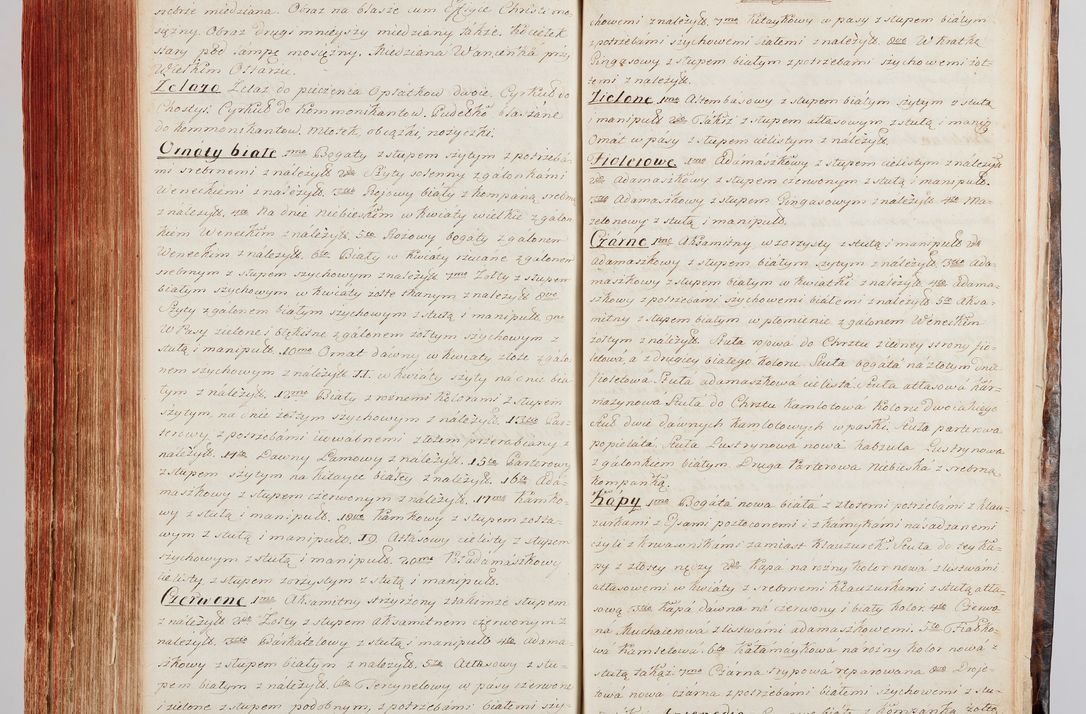 srebrne miedziana. Obraz na blasze cum Effigie Christi mo-
siężny. Obraz drugi mnieyszy miedziany także. Kociełek
stary pod lampę mosiężny. Miedziana Wanienka przy
Wielkim Ołtarzu.
Zelazo Zelazo do pieczenia Opłatkow dwoie. Cyrkuł do
Chostyi. Cyrkuł do Kommonikantow. Pudełko blaszane
do kommonikantow. Młotek, obcążki, nożyczki.
Ornaty białe 1mo Bogaty z stupem szytym z potrzeba-
mi srebrnemi z należyt. 2do Szyty sosenny z galonkami
Weneckiemi z należyt. 3tio Bojowy biały z kompaną srebrną
z należyt. 4to Na dnie Niebieskim w kwiaty wielkie z galon-
kiem Weneckim z należyt. 5to Rożowy bogaty z galonem
Weneckim z należyt. 6to Biały w kwiaty rzucane z galonem
srebrnym z stupem szychowym z należyt. 7mo Zołty z stupem
białym szychowym w kwiaty żołte tkanym z należyt. 8vo
Szyty z galonem białym szychowym z stułą i manipuł. 9no
W pasy zielone i błękitne z galonem żołtym szychowym z
stułą i manipuł. 10mo Ornat dawny w kwiaty złote z galo-
nem szychowym z należyt. 11. w kwiaty szyty na dnie bia-
łym z należyt. 12mo Biały z rożnemi kolorami z stupem
szytym na dnie żołtym szychowym z należyt. 13tio Par-
terowy z potrzebami jedwabnemi złotem przerabiany z
należyt. 14to Dawny Lamowy z należyt. 15to Parterowy
z stupem szytym na kitayce białey z należyt. 16to Ada-
maszkowy z stupem czerwonym z należyt. 17mo Kamko-
wy z stułą i manipuł. 18vo Kamkowy z stupem zołta-
wym z stułą i manipuł. 19 Attasowy cielisty z stupem
szychowym z stułą i manipuł. 20mo Pół adamaszkowy
cielisty z stupem wzorzystym z stułą i manipuł.
Czerwone 1mo Aksamitny strzyżony z takimże stupem
z należyt. 2do Zołty z stupem aksamitnem czerwonym z
należyt. 3tio Barkatelowy z stułą i manipuł. 4to adama-
szkowy z stupem białym z należyt. 5to Attasowy z stu-
pem białym z należyt. 6to Tercynelowy w pasy czerwone
i zielone z stupem podobnym, z potrzebami białemi szy-
chowemi z należyt. 7mo Kitaykowy w pasy z stupem białym
z potrzebami szychowemi białemi z należyt. 8vo W kratkę
Gingasowy z stupem białym z potrzebami szychowemi żoł-
temi z należyt.
Zielone 1mo Altembasowy z stupem białym szytym z stułą
i manipuł. 2do Takiż z stupem attasowym z stułą i manip.
Ornat w pasy z stupem cielistym z należyt.
Fioletowe 1mo Adamaszkowy z stupem cielistym z należyt.
2do Adamaszkowy z stupem czerwonym z stułą i manipuł.
3tio Adamaszkowy z stupem Gingasowym z należyt. 4to Ma-
zelonowy z stułą i manipuł.
Czarne 1mo Aksamitny wzorzysty z stułą i manipuł 2do
adamaszkowy z stupem białym szytym z należyt. 3tio Ada-
maszkowy z stupem białym w kwiatki z należyt. 4to Adama-
szkowy z potrzebami szychowemi białemi z należyt. 5to Aksa-
mitny z stupem białym w płomienie z galonem Weneckim
żołtym z należyt. Stuła nowa do Chrztu z iedney strony fio-
letowa a z drugiey białego koloru. Stuła bogata na złotym dnie
fioletowa. Stuła adamaszkowa cielista. Stuła attasowa Kar-
mazynowa. Stuła do Chrztu kamlotowa koloru dwoiakiego
Stuł dwie dawnych kamlotowych w paski. Stuła parterowa
popielata. Stuła Lustrynowa nowa kabzula Lustrynowa
z galonkiem białym. Druga Parterowa Niebieska z srebrną
kompanką.
Kapy 1mo Bogata nowa biała z złotemi potrzebami z klau-
zurkami z Gsami pozłoconemi i z kamykami nasadzanemi
czyli z krwawnikami zamiast klauzurek. Stuła do tey Ka-
py z złotey nyczy 2do Kapa na rożny kolor nowa z listwami
attasowemi w kwiaty z srebrnemi klauzurkami z stułą atta-
sową 3tio Kapa dawna na czerwony i biały kolor. 4to Czerwo-
na Muchaierowa z listwami adamaszkowemi. 5to Fiałko-
wa Kamlotowa. 6to Kałamaykowa na rożny kolor nowa z
stułą takąż. 7mo Czarna trypowa reparowana 8vo Droje-
towa nowa czarna z potrzebami białemi szychowemi z stu-